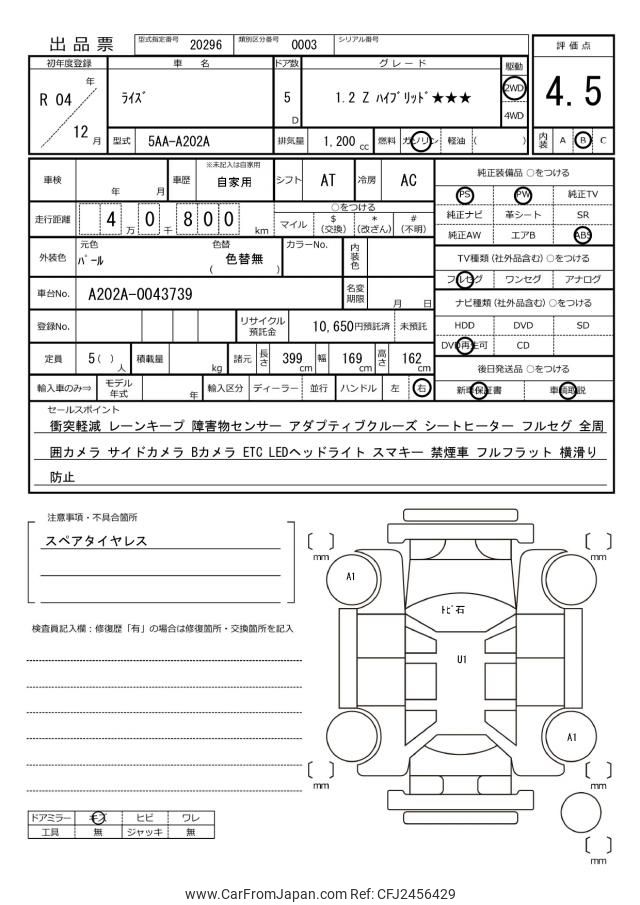 出品票
型式指定番号 20296 類別区分番号 0003 シリアル番号
評価点
4.5
内装 A B C
初年度登録 車名 ドア数 グレード 駆動
R 04 年 12 月
ライズ
5 D
1.2 Z ハイブリッド★★★
2WD
4WD
型式 5AA-A202A 排気量 1,200 cc 燃料 ガソリン 軽油 ( )
車検 年 月 車歴 ※未記入は自家用 自家用 シフト AT 冷房 AC
走行距離 4 万 0 千 8 0 0 km
○をつける
マイル $ (交換) * (改ざん) # (不明)
外装色 元色 パール 色替 ( 色替無 ) カラーNo. 内装色
車台No. A202A-0043739 名変期限 月 日
登録No. リサイクル預託金 10,650円預託済 未預託
定員 5( ) 人 積載量 kg 諸元 長さ 399 cm 幅 169 cm 高さ 162 cm
輸入車のみ⇒ モデル年式 年 輸入区分 ディーラー 並行 ハンドル 左 右
純正装備品 ○をつける
PS PW 純正TV
純正ナビ 革シート SR
純正AW エアB ABS
TV種類(社外品含む) ○をつける
フルセグ ワンセグ アナログ
ナビ種類(社外品含む) ○をつける
HDD DVD SD
DVD再生可 CD
後日発送品 ○をつける
新車保証書 車輌取説
セールスポイント
衝突軽減 レーンキープ 障害物センサー アダプティブクルーズ シートヒーター フルセグ 全周
囲カメラ サイドカメラ Bカメラ ETC LEDヘッドライト スマキー 禁煙車 フルフラット 横滑り
防止
注意事項・不具合箇所
スペアタイヤレス
検査員記入欄：修復歴「有」の場合は修復箇所・交換箇所を記入
ドアミラー キズ ヒビ ワレ
工具 無 ジャッキ 無
mm
mm
A1
トビ石
U1
A1
mm
mm
mm
www.CarFromJapan.com Ref: CFJ2456429